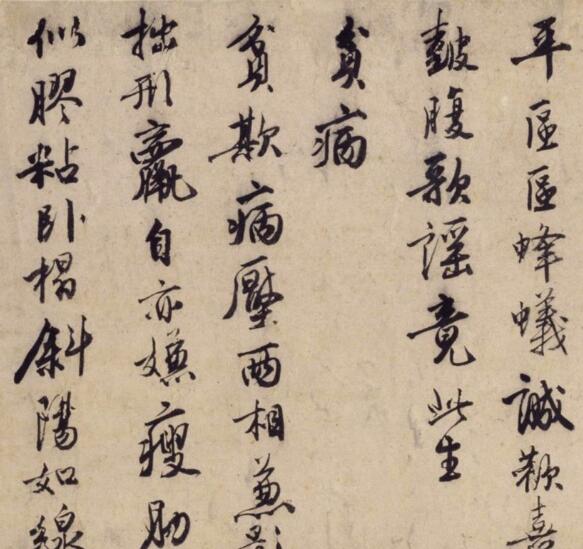 平區區蜂蟻誠歡喜
鼓腹歌謡竟此生
貧病
貧欺病壓兩相兼影
拙形羸自亦嫌瘦肋
似膠粘臥榻斜陽如線